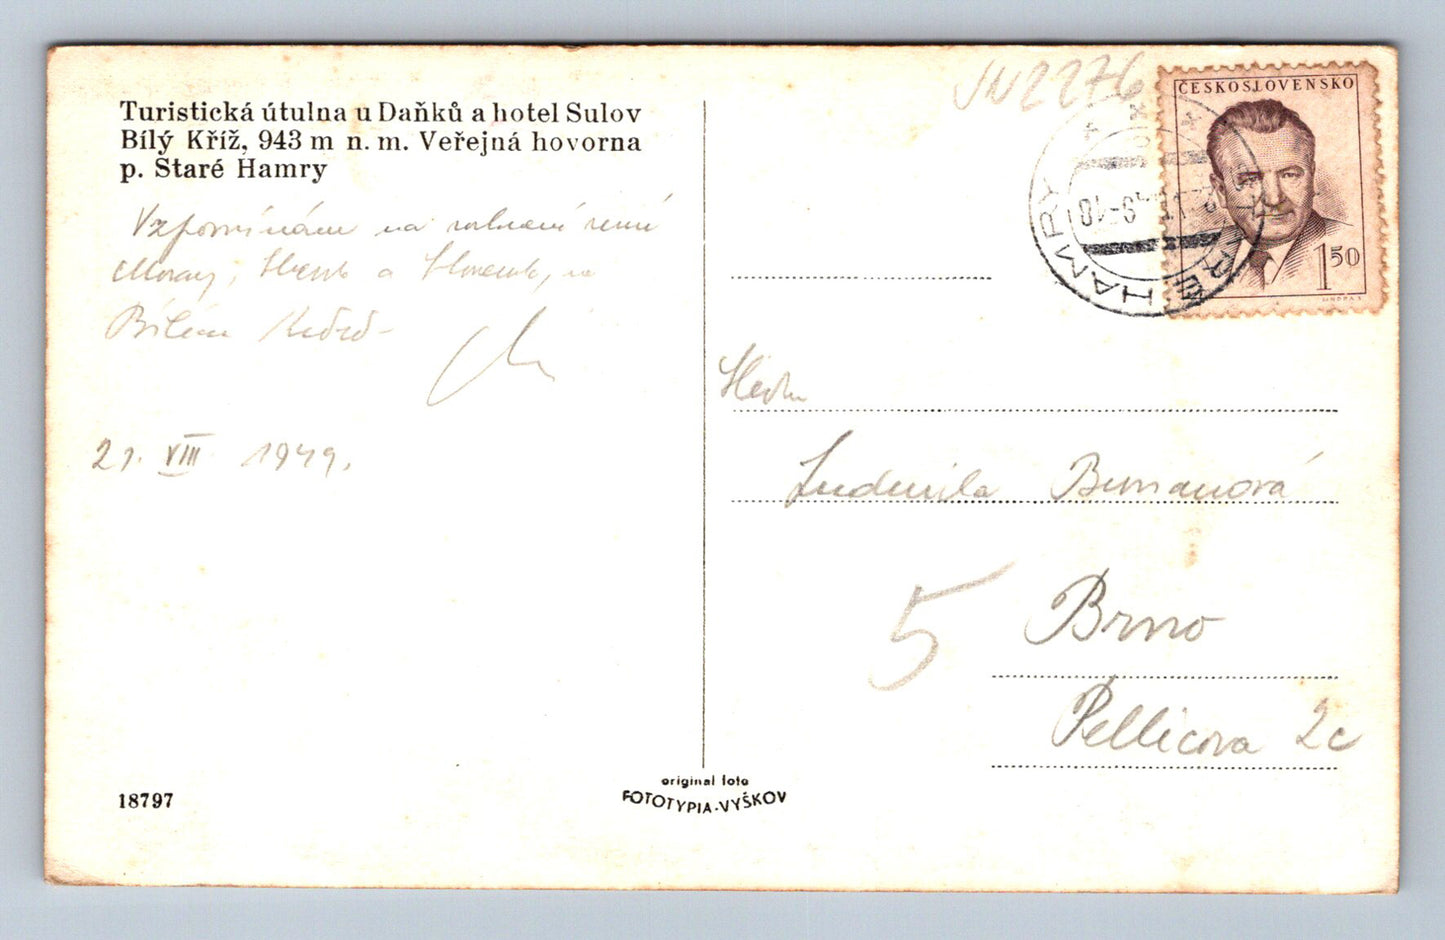 Turistická útulna u Daňků a hotel Sulov
Bílý Kříž, 943 m n. m. Veřejná hovorna
p. Staré Hamry
Vzpomínám na
Moravy, Slezska a Slovenska, na
Bílém Kříži
21. VIII 1949.
18797
original foto
FOTOTYPIA-VYŠKOV
JN2276
ČESKOSLOVENSKO
1 50
RÉ HAMRY
Ludmila
Brno
5
Pellicova 2c